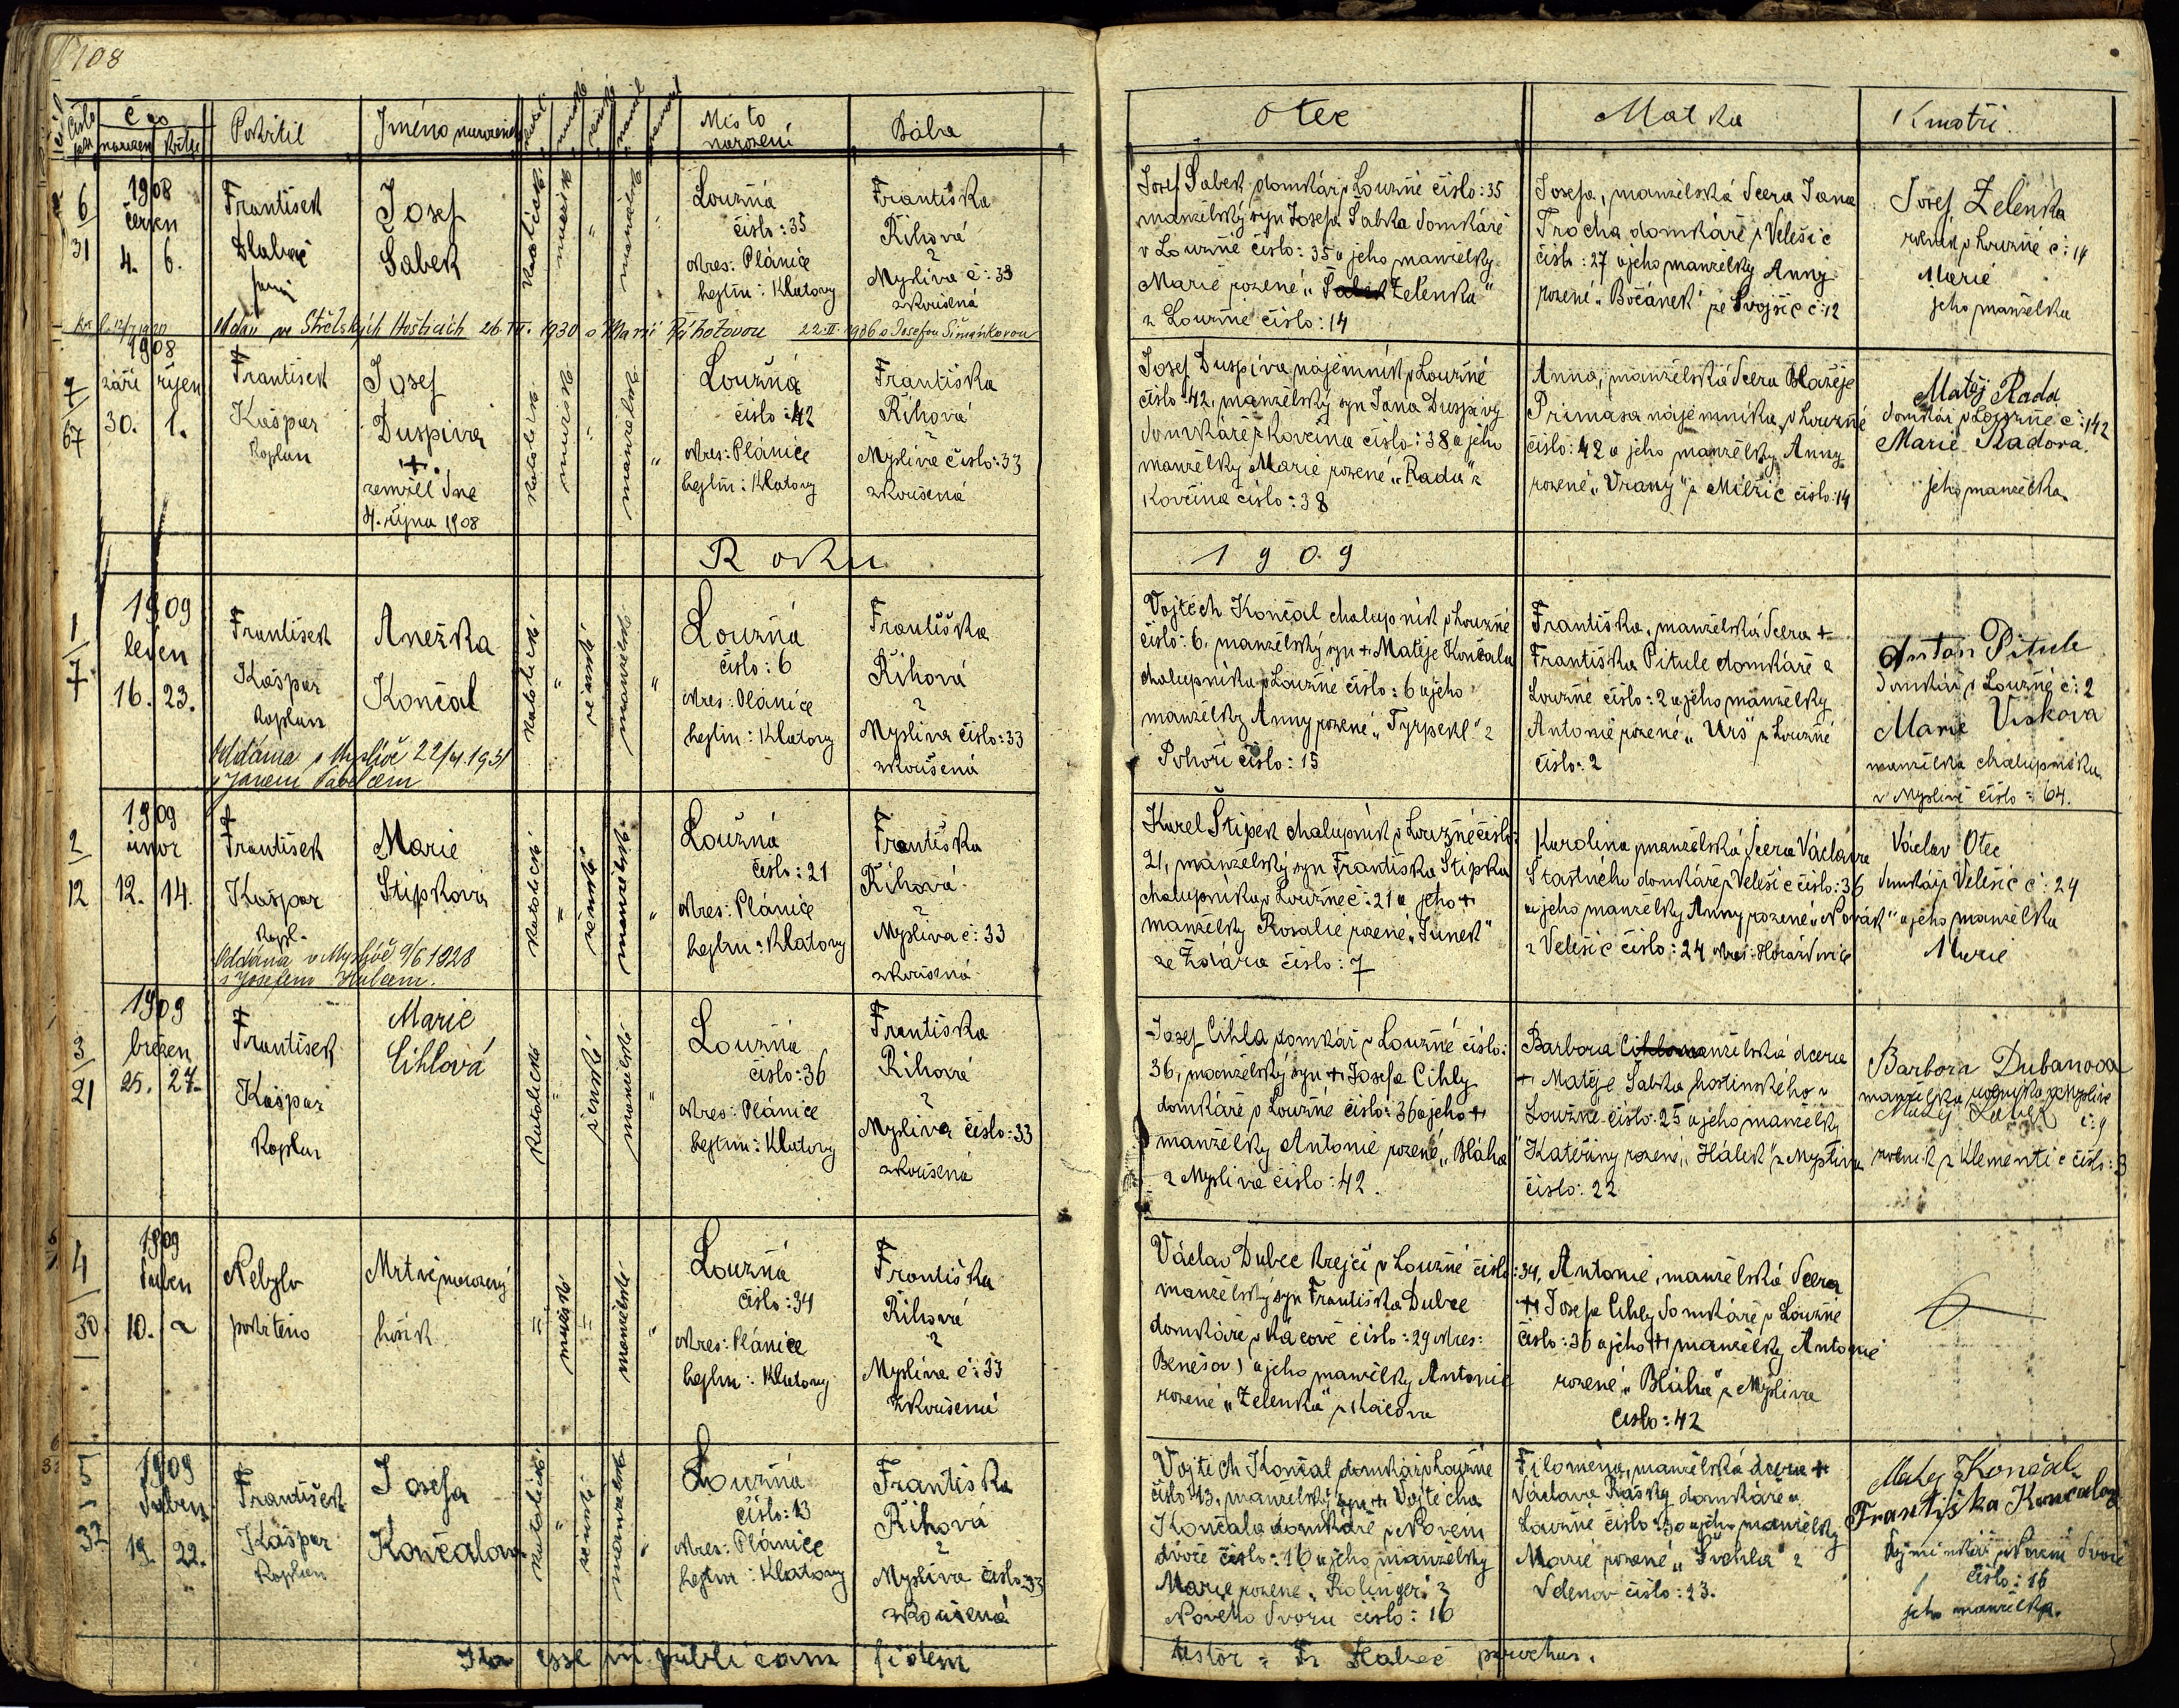 108
Číslo
Čas
narození
křtu
Pokřtil
Jméno narozeného
Místo
narození
Bába
Otec
Matka
Kmotři.
6
31
1908
červen
4. 6.
František
Hlaváč
farář
Josef
Šabek
katolické
mužské
"
manželské
"
Loužná
číslo: 35
okres: Plánice
hejtm: Klatovy
Františka
Říhová
z
Myslíva č: 33
zkoušená
Josef Šabek domkář v Loužné číslo: 35
manželský syn Josefa Šabka domkáře
v Loužné číslo: 35 a jeho manželky
Marie rozené „Zelenka“
z Loužné číslo: 14
Josefa, manželská dcera Jana
Trocha domkáře z Velešic
číslo: 27 a jeho manželky Anny
rozené „Bočánek“ ze Svojšic č: 12
Josef Zelenka
rolník v Loužné č: 14
Marie
jeho manželka
Oddán ve Střelských Hošticích 26. IV. 1930 s Marií Rýhotovou 22. II. 1936 s Josefou Šimánkovou
7
67
1908
září říjen
30. 1.
František
Kašpar
Kaplan
Josef
Duspiva
+.
zemřel dne
4. října 1908
katolické
mužské
"
manželské
"
Loužná
číslo: 42
okres: Plánice
hejtm: Klatovy
Františka
Říhová
z
Myslíva číslo: 33
zkoušená
Josef Duspiva nájemník v Loužné
číslo 42, manželský syn Jana Duspivy
domkáře z Kovčína číslo: 38 a jeho
manželky Marie rozené „Rada“ z
Kovčína číslo: 38
Anna, manželská dcera Blažeje
Primasa nájemníka v Loužné
číslo: 42 a jeho manželky Anny
rozené „Vrany“ z Milčic číslo: 14
Matěj Rada
domkář v Loužné č: 142
Marie Radova.
jeho manželka.
Roku
1909
1
7
1909
leden
16. 23.
František
Kašpar
kaplan
Anežka
Končal
katolické
"
ženské
manželské
"
Loužná
číslo: 6
okres: Plánice
hejtm: Klatovy
Františka
Říhová
z
Myslíva číslo: 33
zkoušená
Vojtěch Končal chalupník v Loužné
číslo: 6, manželský syn + Matěje Končala
chalupníka v Loužné číslo: 6 a jeho
manželky Anny rozené „Tyrpekl“ z
Pohoří číslo: 15
Františka, manželská dcera +
Františka Pitule domkáře z
Loužné číslo: 2 a jeho manželky
Antonie rozené „Urš“ z Loužné
číslo: 2
Anton Pitule
domkář v Loužné č: 2
Marie Viskova
manželka chalupníka
v Myslívě číslo: 64.
Oddána v Myslívě 22/VI. 1931
s Janem
2
12
1909
únor
12. 14.
František
Kašpar
Kapl.
Marie
Štipková
katolické
"
ženské
manželské
"
Loužná
číslo: 21
okres: Plánice
hejtm: Klatovy
Františka
Říhová
z
Myslíva č: 33
zkoušená
Karel Štipek chalupník v Loužné číslo:
21, manželský syn Františka Štipka
chalupníka v Loužné č: 21 a jeho +
manželky Rosalie rozené „Šunek“
ze Ždára číslo: 7
Karolina manželská dcera Václava
Šťastného domkáře z Velešic číslo: 36
a jeho manželky Anny rozené „Novák“
z Velešic číslo: 24 okres: Horažďovice
Václav Otec
domkář z Velešic č: 24
a jeho manželka
Marie
Oddána v Myslívě 9/6 1928
s Josefem
3
21
1909
březen
25. 27.
František
Kašpar
Kaplan
Marie
Cihlová
katolické
"
ženské
manželské
"
Loužná
číslo: 36
okres: Plánice
hejtm: Klatovy
Františka
Říhová
z
Myslíva číslo: 33
zkoušená
Josef Cihla domkář v Loužné číslo:
36, manželský syn + Josefa Cihly
domkáře v Loužné číslo: 36 a jeho +
manželky Antonie rozené „Bláha“
z Myslíva číslo: 42.
Barbora manželská dcera
+ Matěje Šabka hostinského v
Loužné číslo: 25 a jeho manželky
Kateřiny rozené „Hálek“ z Myslíva
číslo: 22
Barbora Dubanova
manželka z Myslíva
č: 9
Matěj
rolník z Klementic číslo: 3
4
30
1909
duben
10.
Nebylo
pokřtěno
Mrtvě narozený
hošík
"
mužské
"
manželské
"
Loužná
číslo: 34
okres: Plánice
hejtm: Klatovy
Františka
Říhová
z
Myslíva č: 33
zkoušená
Václav Dubec krejčí v Loužné číslo: 34,
manželský syn Františka Dubce
domkáře v Kácově číslo: 29 okres:
Benešov) a jeho manželky Antonie
rozené „Zelenka“ z Kácova
Antonie, manželská dcera
+ Josefa Cihly domkáře v Loužné
číslo: 36 a jeho + manželky Antonie
rozené „Bláha“ z Myslíva
číslo: 42
5
32
1909
duben
19. 22.
František
Kašpar
Kaplan
Josefa
Končalova
katolické
"
ženské
manželské
"
Loužná
číslo: 13
okres: Plánice
hejtm: Klatovy
Františka
Říhová
z
Myslíva číslo 33
zkoušená
Vojtěch Končal domkář v Loužné
číslo 13, manželský syn + Vojtěcha
Končala domkáře v Novém
dvoře číslo: 16 a jeho manželky
Marie rozené „Rolinger“ z
Nového Dvoru číslo: 16
Filoména, manželská dcera +
Václava Rašky domkáře v
Loužné číslo: 30 a jeho manželky
Marie rozené „Švehla“ z
číslo: 23.
Matěj Končal
Františka Končalova
v Novém Dvoře
číslo: 16
jeho manželka.
Ita esse in publicam fidem
testor: Fr Hlaváč parochus.